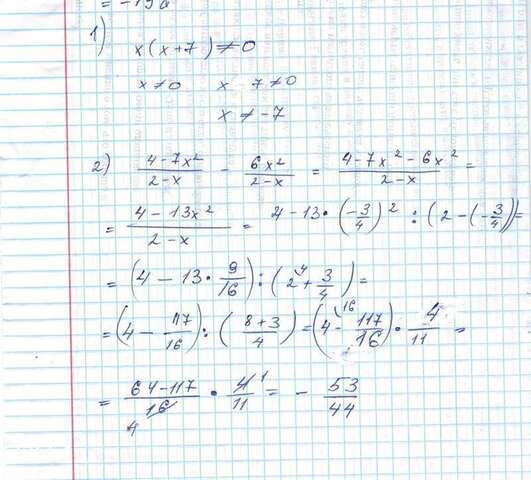 = -19a
1)
x(x+7) ≠ 0
x ≠ 0 x 7 ≠ 0
x ≠ -7
2) (4-7x²)/(2-x) - (6x²)/(2-x) = (4-7x²-6x²)/(2-x) =
= (4-13x²)/(2-x) = 4-13·(-3/4)² : (2-(-3/4)) =
= (4-13·9/16) : (2⁴+3/4) =
= (4-117/16) : ((8+3)/4) = (4¹⁶-117/16)·4/11 =
= (64-117)/16 4 · 4/11 ¹ = -53/44